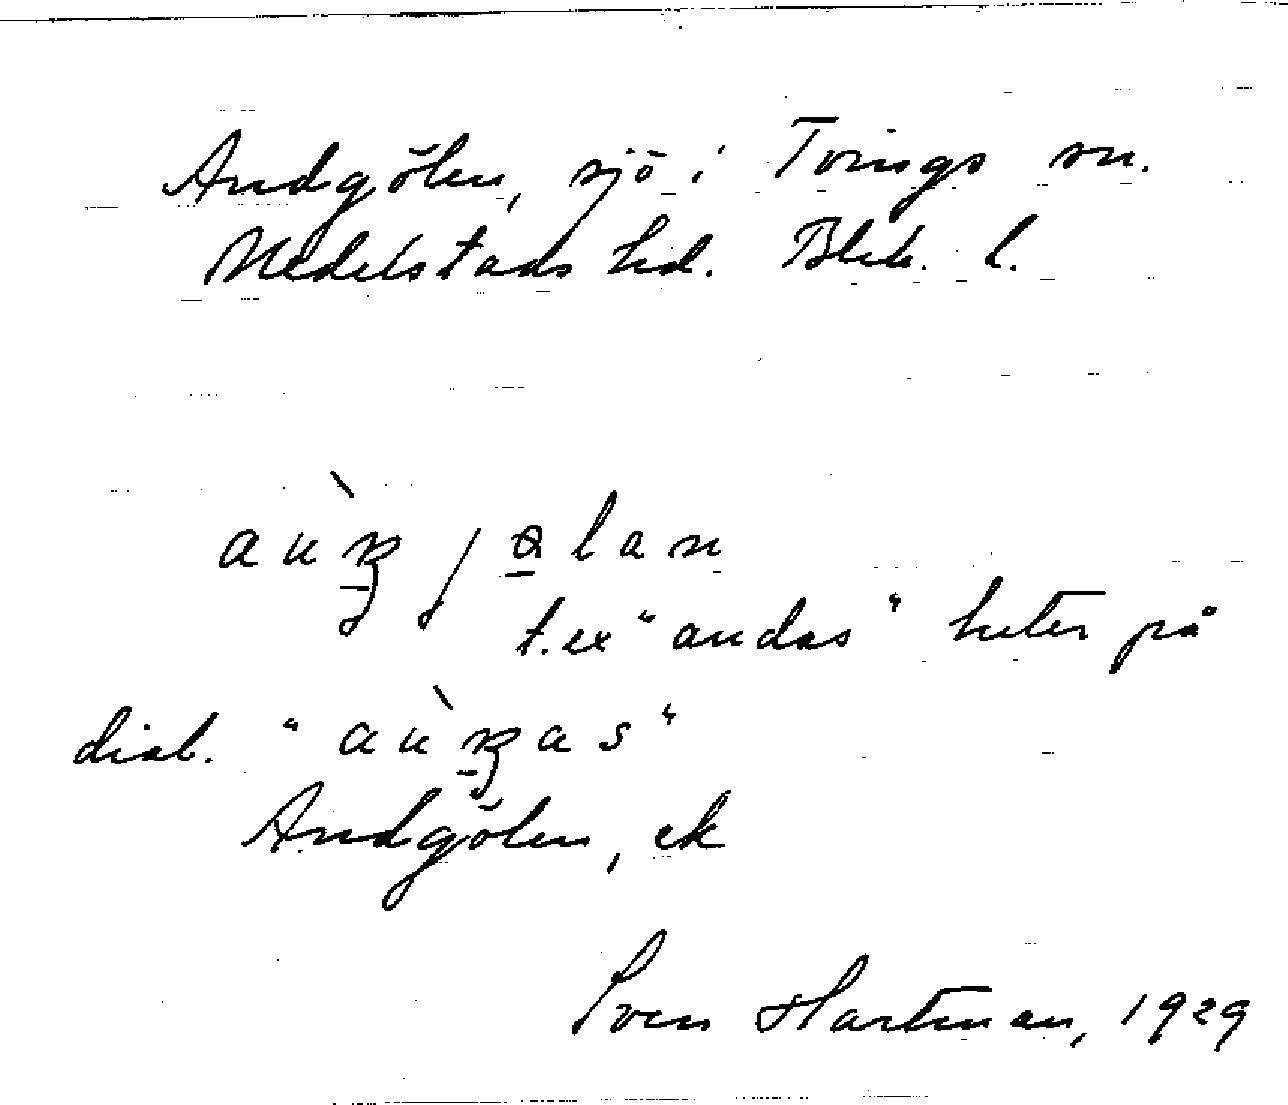 Andgölen, sjö i Tvings sn.
Medelstads hd. Blek. l.
t.ex "andas" heter på
dial. "
Andgölen, ek
Sven Hartman, 1929